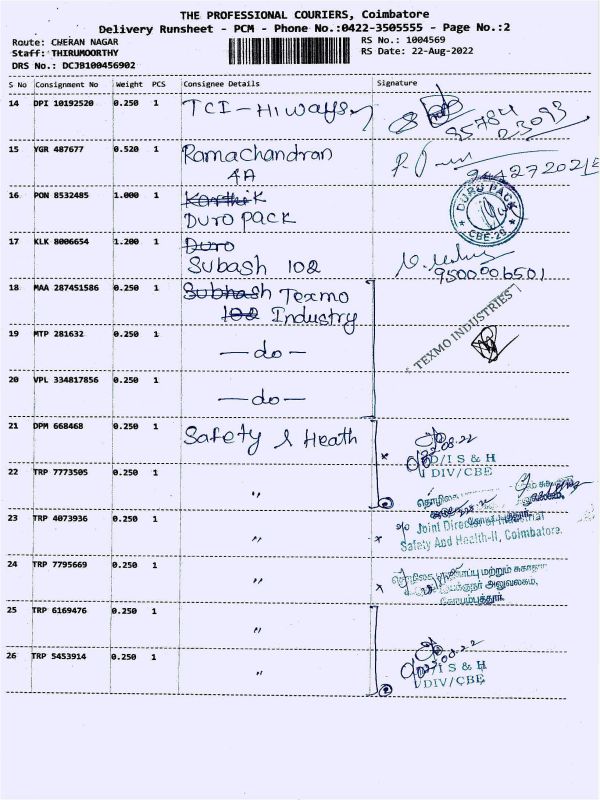 THE PROFESSIONAL COURIERS, Coimbatore
Delivery Runsheet - PCM - Phone No.:0422-3505555 - Page No.:2
Route: CHERAN NAGAR
Staff: THIRUMOORTHY
DRS No.: DCJB100456902
RS No.: 1004569
RS Date: 22-Aug-2022
S No Consignment No Weight PCS Consignee Details Signature
14 DPI 10192520 0.250 1 TCI-Hiways
95784
23093
15 YGR 487677 0.520 1 Ramachandran
4A
16 PON 8532485 1.000 1 Karthik
DURO PACK
DURO PACK
CBE-29
17 KLK 8006654 1.200 1 Duro
Subash 102
9500006501
18 MAA 287451586 0.250 1 Subhash Texmo
102 Industry
TEXMO INDUSTRIES
19 MTP 281632 0.250 1 —do—
20 VPL 334817856 0.250 1 —do—
21 DPM 668468 0.250 1 Safety & Heath
22.08.22
D/I S & H
DIV/CBE
22 TRP 7773505 0.250 1 "
23 TRP 4073936 0.250 1 "
Joint Director of Industrial
Safety And Health-II, Coimbatore.
24 TRP 7795669 0.250 1 "
கோயம்புத்தூர்.
25 TRP 6169476 0.250 1 "
26 TRP 5453914 0.250 1 "
D/I S & H
DIV/CBE